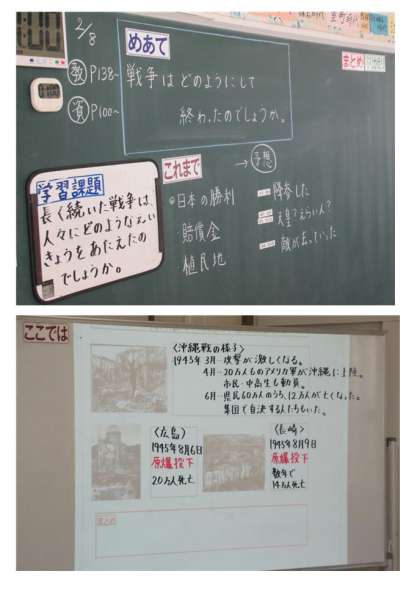 2/8
めあて
教 P138~
資 P100~
戦争はどのようにして
終わったのでしょうか。
まとめ
学習課題
長く続いた戦争は、
人々にどのようなえい
きょうをあたえたの
でしょうか。
これまで
→予想
日本の勝利
賠償金
植民地
降参した
天皇?えらい人?
敵が去っていった
ここでは
〈沖縄戦の様子〉
1945年 3月…攻撃が激しくなる。
4月…20万人ものアメリカ軍が沖縄に上陸。
市民・中高生も動員。
6月…県民60万人のうち、12万人が亡くなった。
集団で自決する人たちもいた。
〈広島〉
1945年8月6日
原爆投下
20万人死亡
〈長崎〉
1945年8月9日
原爆投下
数年で
14万人死亡
まとめ